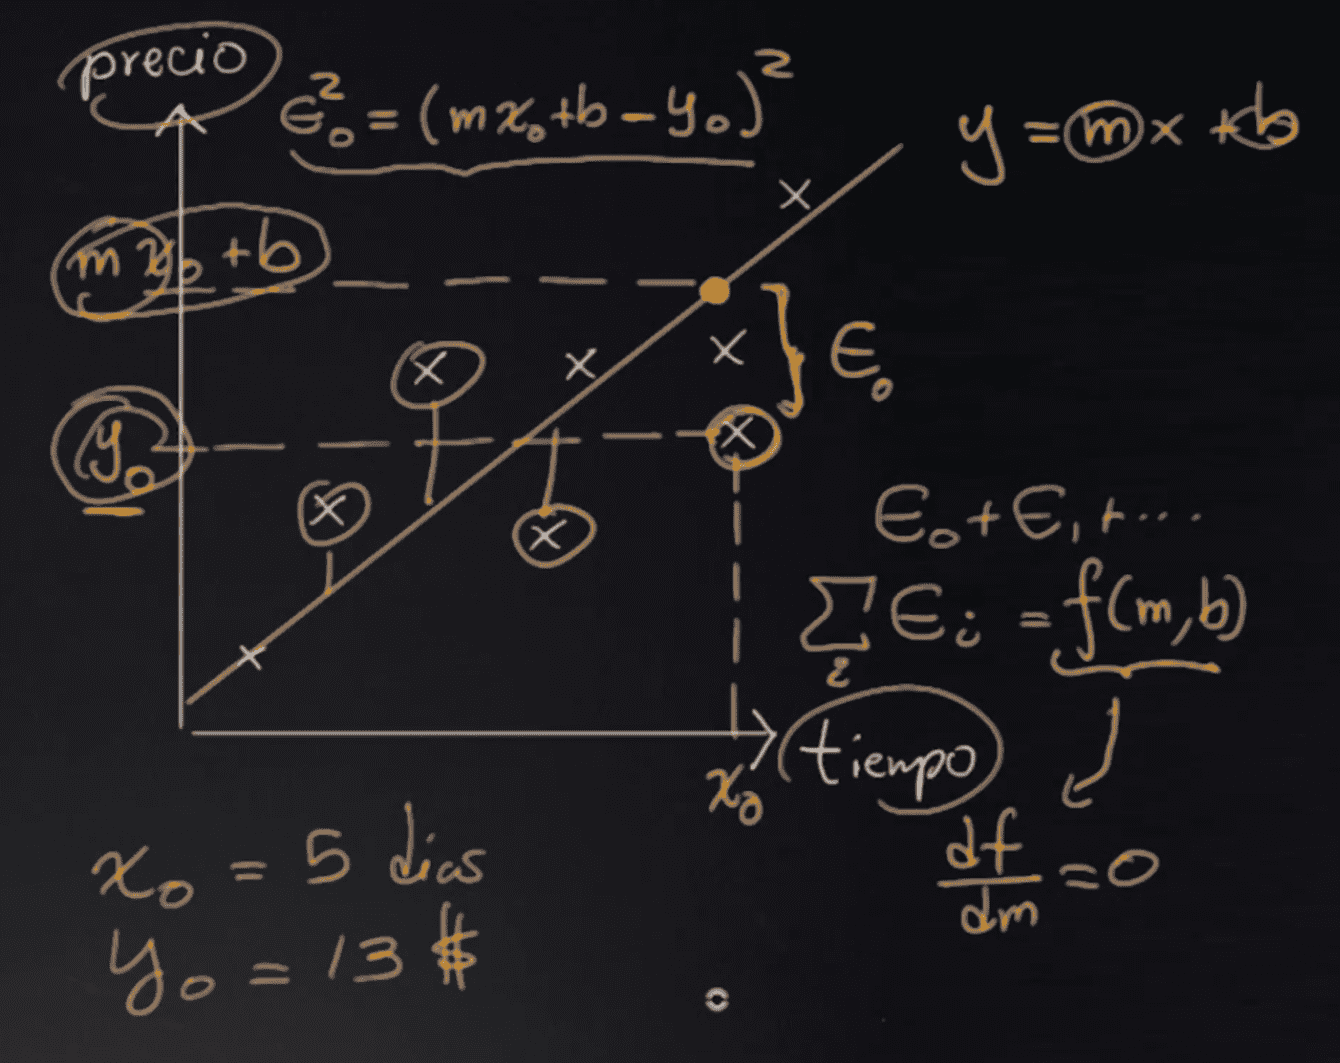 precio
ϵ₀² = (mx₀+b−y₀)²
y = mx+b
mx₀+b
ϵ₀
y₀
ϵ₀+ϵ₁+...
∑ᵢ ϵᵢ = f(m,b)
tiempo
x₀
df/dm = 0
x₀ = 5 dias
y₀ = 13 $